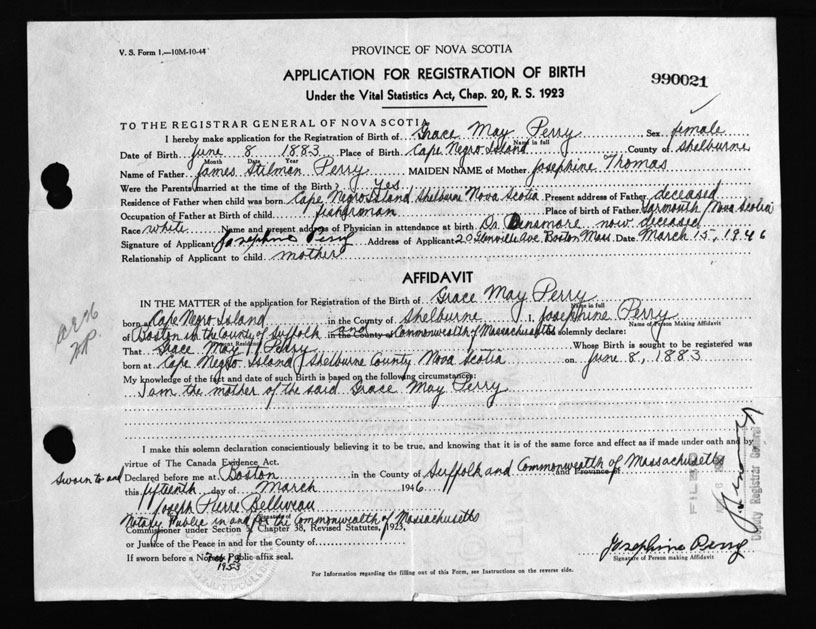 V. S. Form 1.—10M-10-44
PROVINCE OF NOVA SCOTIA
APPLICATION FOR REGISTRATION OF BIRTH
990021
Under the Vital Statistics Act, Chap. 20, R. S. 1923
TO THE REGISTRAR GENERAL OF NOVA SCOTIA
I hereby make application for the Registration of Birth of Grace May Perry Sex female
Name in full
Date of Birth June 8 1883 Place of Birth Cape Negro Island County of Shelburne
Month Date Year
Name of Father James Stilman Perry MAIDEN NAME of Mother Josephine Thomas
Were the Parents married at the time of the Birth? Yes
Residence of Father when child was born Cape Negro Island Shelburne Nova Scotia Present address of Father deceased
Occupation of Father at Birth of child fishfroman Place of birth of Father Yarmouth, Nova Scotia
Race white Name and present address of Physician in attendance at birth Dr Dinsmore now deceased
Signature of Applicant Josephine Perry Address of Applicant 20 Glenville Ave Boston Mass. Date March 15, 1946
Relationship of Applicant to child mother
AFFIDAVIT
IN THE MATTER of the application for Registration of the Birth of Grace May Perry
Name in full
born at Cape Negro Island in the County of Shelburne I, Josephine Perry
Name of Person Making Affidavit
of Boston in the County of Suffolk and in the County of Commonwealth of Massachusetts solemnly declare:
That Grace May Perry Whose Birth is sought to be registered was
born at Cape Negro Island, Shelburne County Nova Scotia on June 8, 1883
My knowledge of the fact and date of such Birth is based on the following circumstances:
I am the mother of the said Grace May Perry
I make this solemn declaration conscientiously believing it to be true, and knowing that it is of the same force and effect as if made under oath and by
virtue of The Canada Evidence Act.
Sworn to and
Declared before me at Boston in the County of Suffolk and Commonwealth of Massachusetts and Province of
this fifteenth day of March 1946
Joseph Pierre Belliveau
Signature of
Notary Public in and for the Commonwealth of Massachusetts
Commissioner under Section 5, Chapter 38, Revised Statutes, 1923,
or Justice of the Peace in and for the County of
If sworn before a Notary Public affix seal.
1953
Josephine Perry
Signature of Person making Affidavit
For Information regarding the filling out of this Form, see Instructions on the reverse side.
FILED
Deputy Registrar General